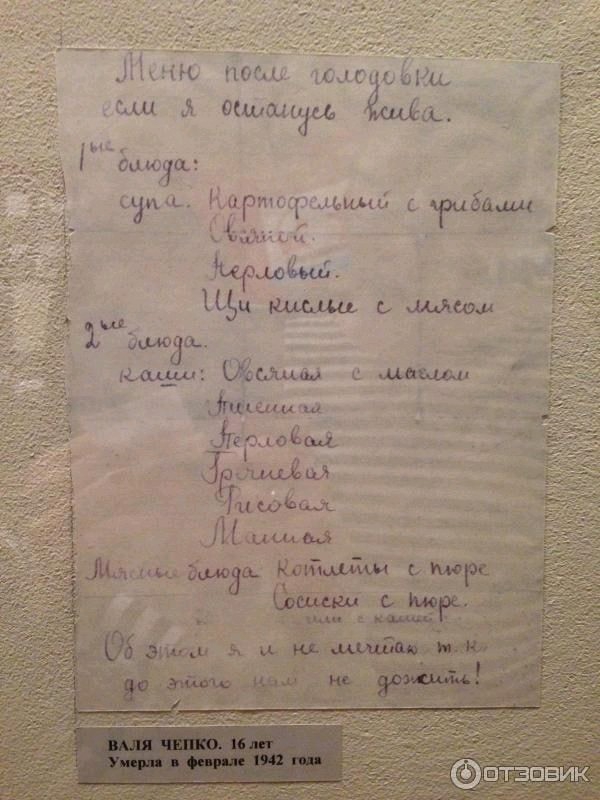 Меню после голодовки
если я останусь жива.
1ые блюда:
супа. Картофельный с грибами
Овсяной.
Перловый.
Щи кислые с мясом
2ые блюда.
каши: Овсяная с маслом
Пшенная
Перловая
Гречневая
Рисовая
Манная
Мясные блюда Котлеты с пюре
Сосиски с пюре.
или с кашей
Об этом я и не мечтаю т.к.
до этого нам не дожить!
ВАЛЯ ЧЕПКО. 16 лет
Умерла в феврале 1942 года
ОТЗОВИК